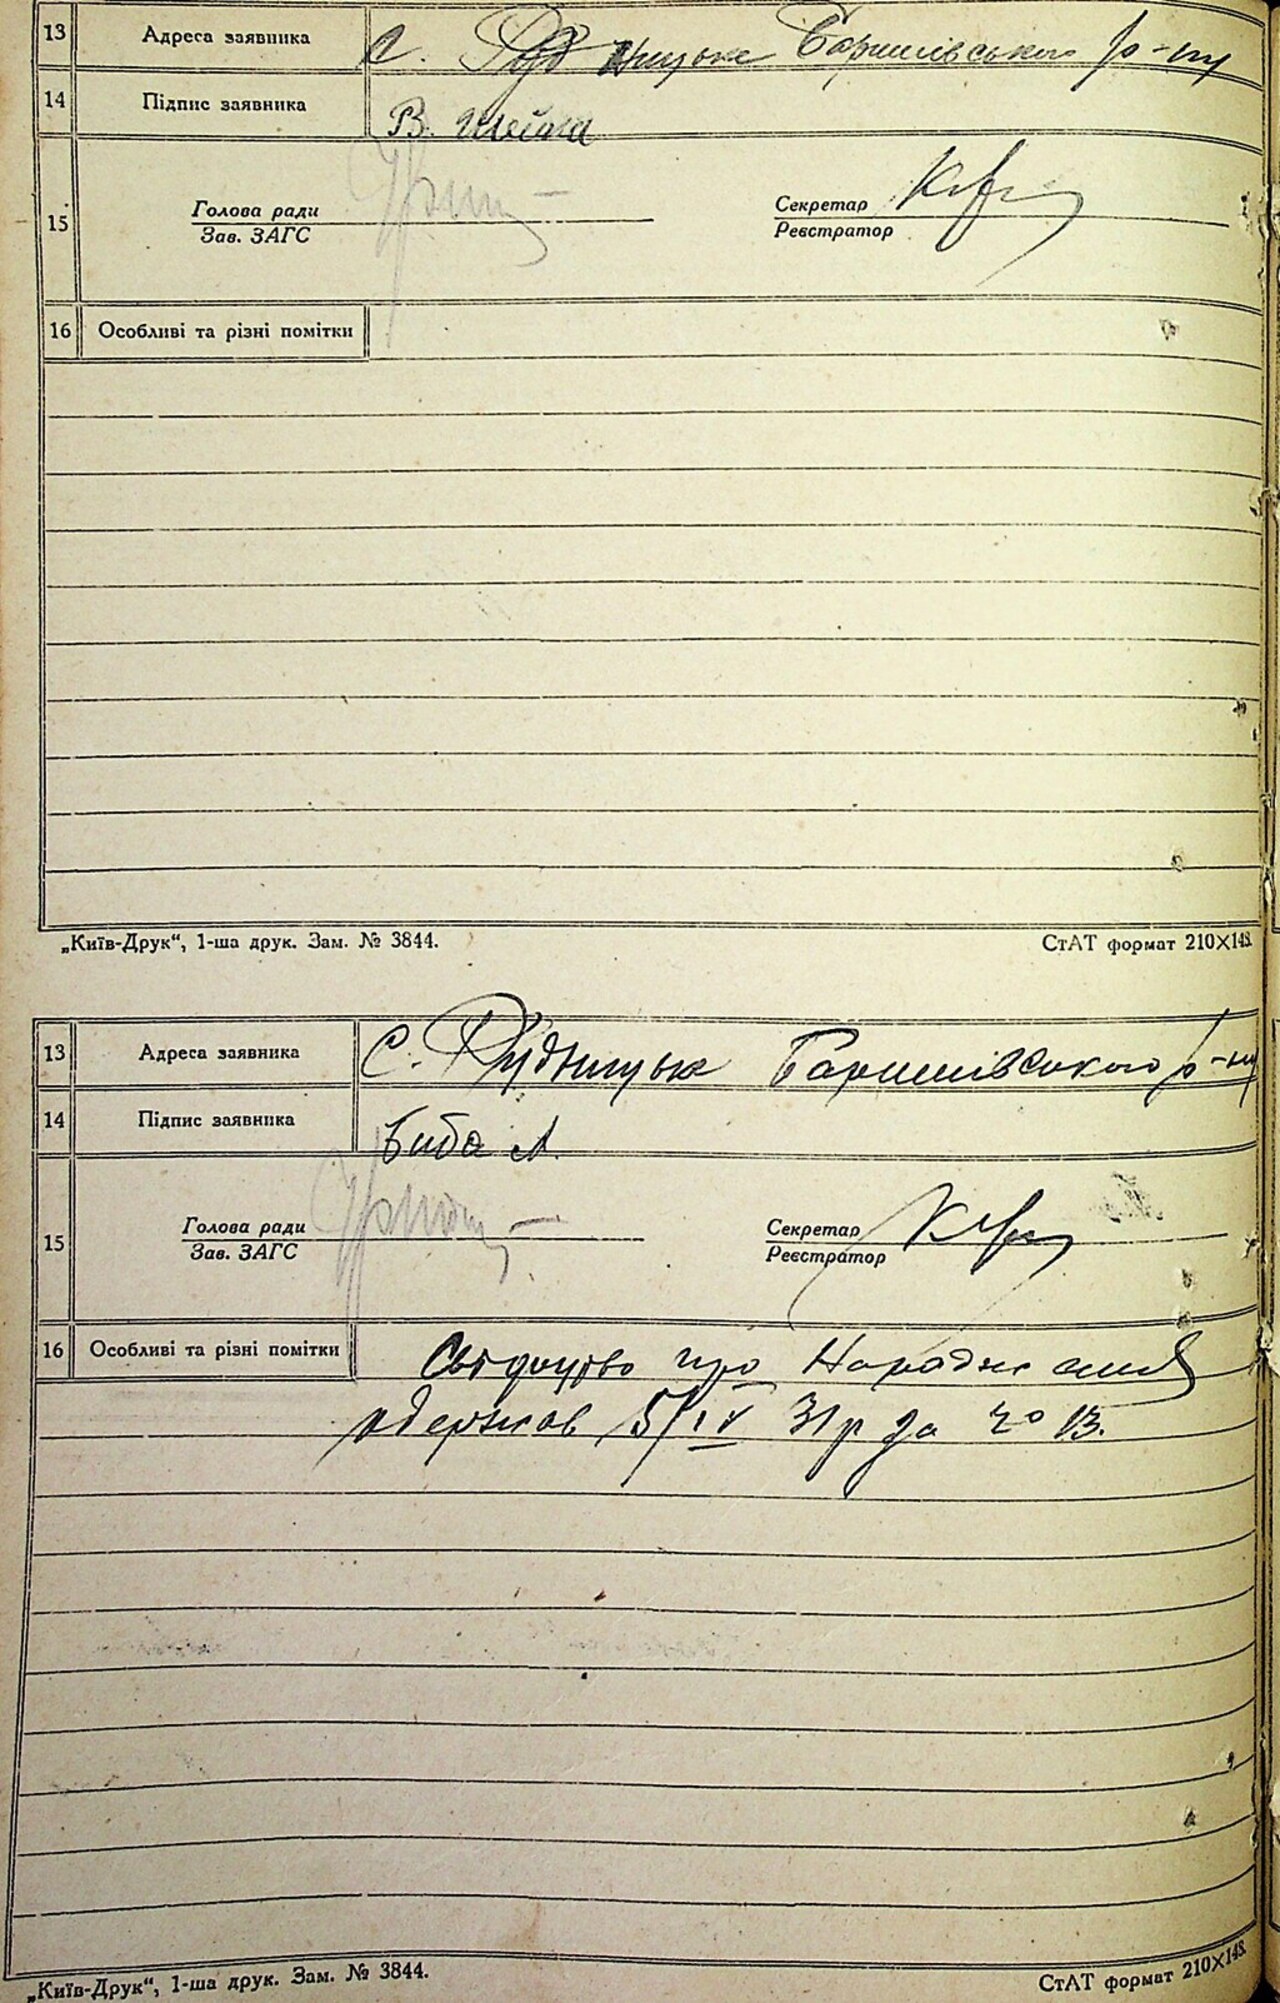 13 Адреса заявника с. Рудницьке Баришівського р-ну
14 Підпис заявника В. Шейка
15 Голова ради Секретар
Зав. ЗАГС Реєстратор
16 Особливі та різні помітки
„Київ-Друк“, 1-ша друк. Зам. № 3844. СтАТ формат 210×148.
13 Адреса заявника С. Рудницьке Баришівського р-ну
14 Підпис заявника Биба А.
15 Голова ради Секретар
Зав. ЗАГС Реєстратор
16 Особливі та різні помітки Свідоцтво про Народження
одержав 5/IV 31 р за № 13.
„Київ-Друк“, 1-ша друк. Зам. № 3844. СтАТ формат 210×148.